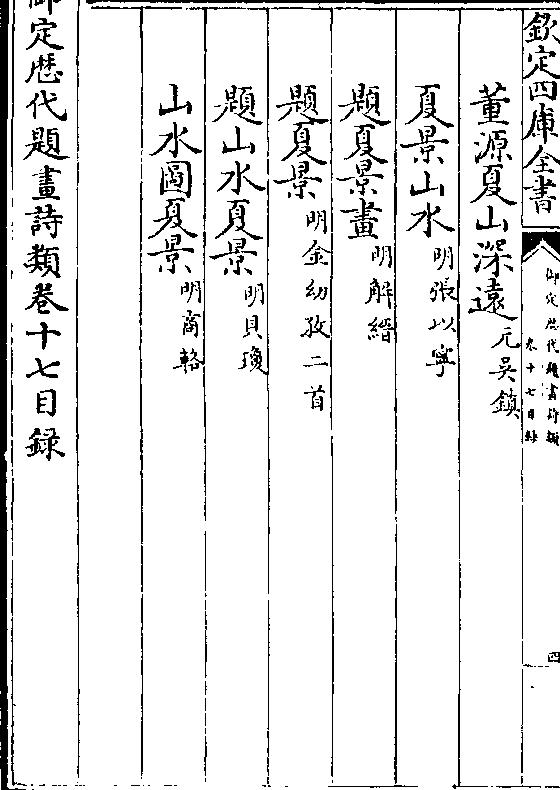 欽定四庫全書
御定歷代題畫詩類
卷十七目錄
四
董源夏山深遠 元吳鎮
夏景山水 明張以寧
題夏景畫 明解縉
題夏景 明金幼孜二首
題山水夏景 明貝瓊
山水圖夏景 明商輅
御定歷代題畫詩類卷十七目録